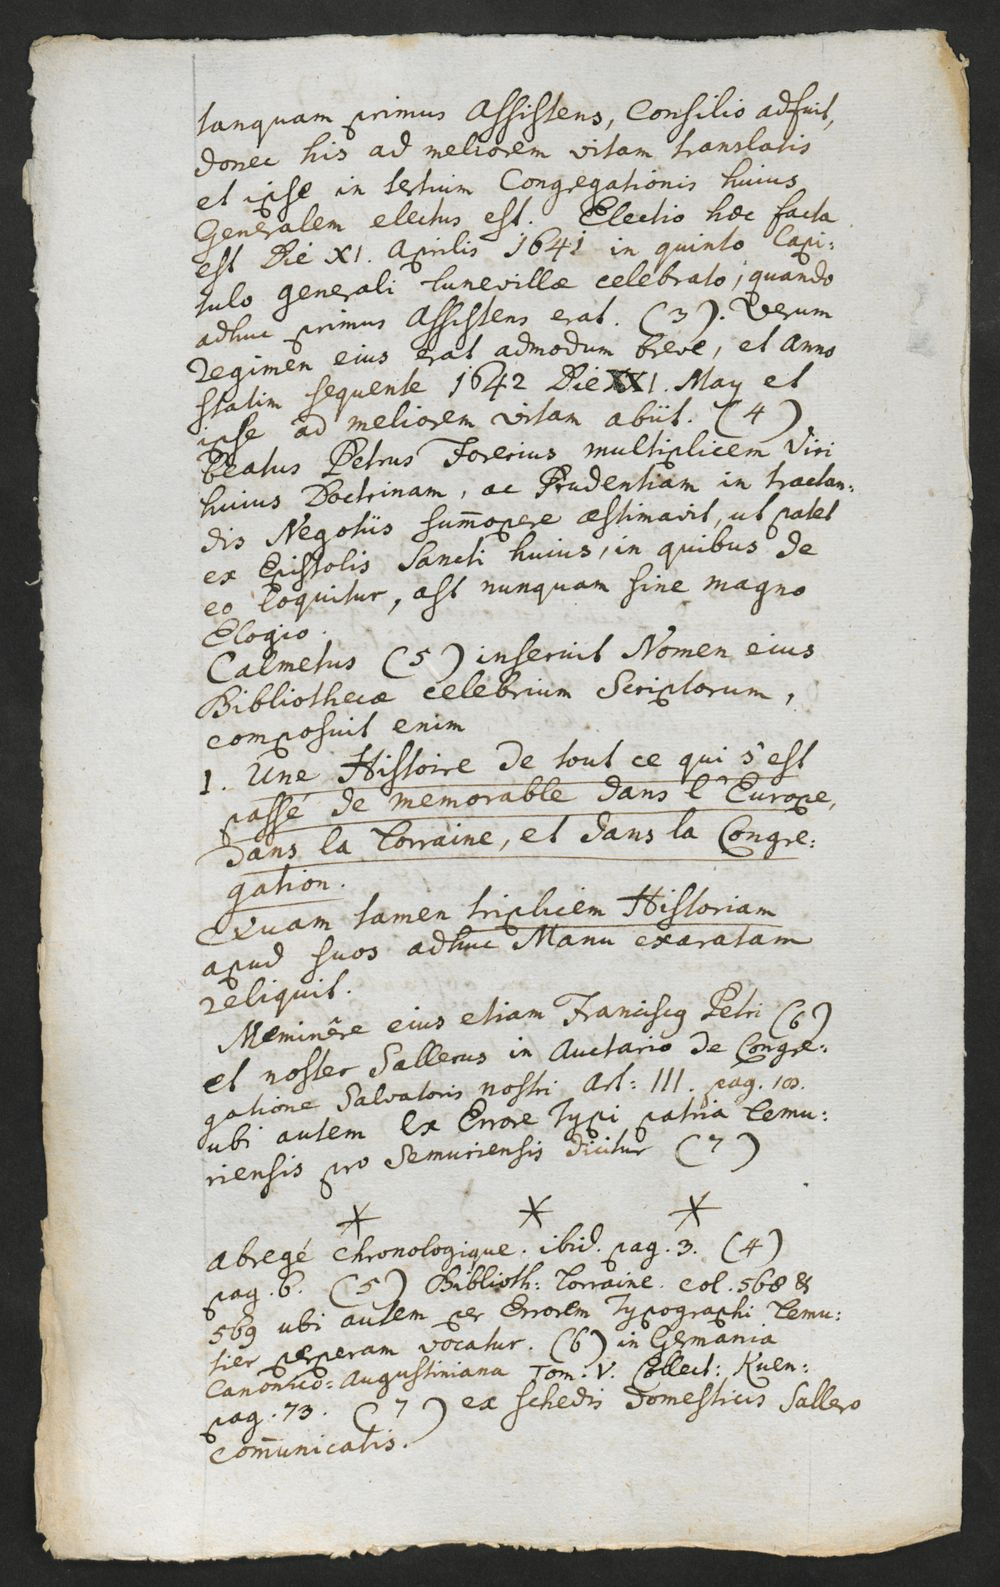 tanquam primus Assistens, Consilio adfuit,
donec his ad meliorem vitam translatis
et ipse in tertium Congregationis huius
Generalem electus est. Electio hæc facta
est Die XI. Aprilis 1641 in quinto Capi:
tulo generali Lunevillæ celebrato, quando
adhuc primus Assistens erat. (3). Verum
regimen eius erat admodum breve, et Anno
statim sequente 1642 Die XXI. May et
ipse ad meliorem vitam abiit. (4)
Beatus Petrus Forerius multiplicem Viri
huius Doctrinam, ac Prudentiam in tractan:
dis Negotiis sum̄opere æstimavit, ut patet
ex Epistolis Sancti huius, in quibus de
eo loquitur, ast nunquam sine magno
Elogio.
Calmetus (5) inseruit Nomen eius
Bibliothecæ celebrium Scriptorum,
composuit enim
1. Une Histoire de tout ce qui s'est
passé de memorable dans l'Europe,
dans la Lorraine, et dans la Congre:
gation.
Quam tamen triplicem Historiam
apud suos adhuc Manu exaratam
reliquit.
Meminêre eius etiam Franciscq Petri (6)
et noster Sallerus in Auctario de Congre:
gatione Salvatoris nostri Art: III. pag. 100.
ubi autem ex Errore Typi patria Lemu:
riensis pro Semuriensis dicitur (7)
* * *
abregé chronologique. ibid. pag. 3. (4)
pag. 6. (5) Biblioth: Lorraine. col. 568 &
569 ubi autem per Errorem Typographi Lemu:
tier perperam vocatur. (6) in Germania
Canonico=Augustiniana Tom: V. Collect: Kuen:
pag. 73. (7) ex schedis domesticis Sallero
com̄unicatis.